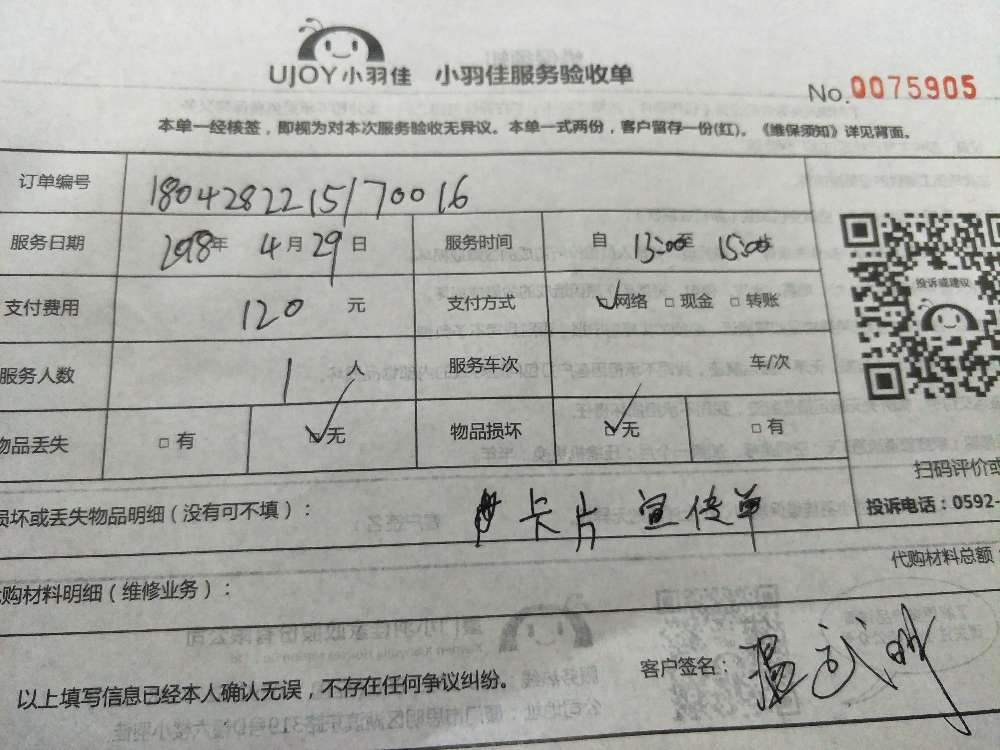 UJOY小羽佳 小羽佳服务验收单
No.0075905
本单一经核签，即视为对本次服务验收无异议。本单一式两份，客户留存一份(红)。《维保须知》详见背面。
订单编号 1804282215170016
服务日期 2018年 4月29日 服务时间 自 13:00至 15:00
支付费用 120 元 支付方式 ☑网络 □现金 □转账
投诉或建议
服务人数 1 人 服务车次 车/次
物品丢失 □有 ☑无 物品损坏 ☑无 □有
扫码评价或
损坏或丢失物品明细（没有可不填）： 卡片 宣传单
投诉电话：0592-
代购材料总额
代购材料明细（维修业务）：
以上填写信息已经本人确认无误，不存在任何争议纠纷。 客户签名：